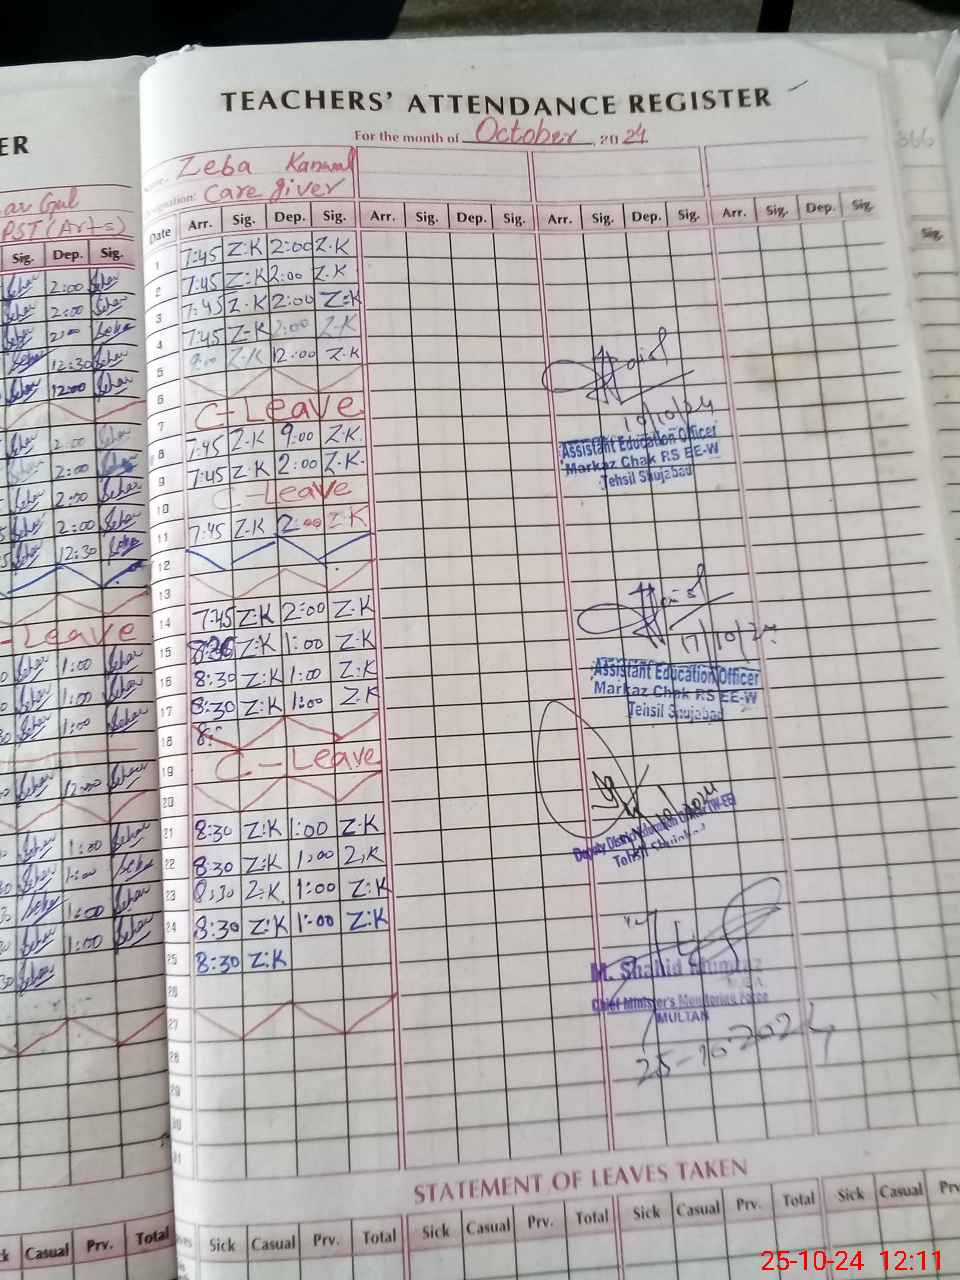 TEACHERS' ATTENDANCE REGISTER
For the month of October, 2024
Zeba Kanwal
Designation: Care giver
Date Arr. Sig. Dep. Sig. Arr. Sig. Dep. Sig. Arr. Sig. Dep. Sig. Arr. Sig. Dep. Sig.
1 7:45 Z:K 2:00 Z.K
2 7:45 Z:K 2:00 Z.K
3 7:45 Z.K 2:00 Z:K
4 7:45 Z:K 2:00 Z.K
5 9:00 Z.K 12:00 Z.K
6
7 C-Leave
8 7:45 Z.K 9:00 Z.K.
9 7:45 Z.K 2:00 Z.K.
10 C-Leave
11 7:45 Z.K 2:00 Z.K
12
13
14 7:45 Z:K 2:00 Z.K
15 Z:K 1:00 Z.K
16 8:30 Z:K 1:00 Z:K
17 8:30 Z:K 1:00 Z.K
18 8:
19 C-Leave
20
21 8:30 Z:K 1:00 Z:K
22 8:30 Z:K 1:00 Z,K
23 8:30 Z:K. 1:00 Z:K
24 8:30 Z:K 1:00 Z:K
25 8:30 Z:K
26
27
28
29
30
31
Assistant Education Officer
Markaz Chak RS EE-W
Tehsil Shujabad
17/10/24
Assistant Education Officer
Markaz Chak RS EE-W
Tehsil Shujabad
M. Shahid Mumtaz
Chief Minister's Monitoring Force
MULTAN
25-10-2024
STATEMENT OF LEAVES TAKEN
Sick Casual Prv. Total Sick Casual Prv. Total Sick Casual Prv. Total Sick Casual
ER
PST (Arts)
Sig. Dep. Sig.
2:00
2:00
2:00
12:30
12:00
2:00
2:00
2:00
2:00
12:30
-Leave
1:00
1:00
1:00
12:00
1:00
1:00
1:00
1:00
Casual Prv. Total
Sig.
25-10-24 12:11